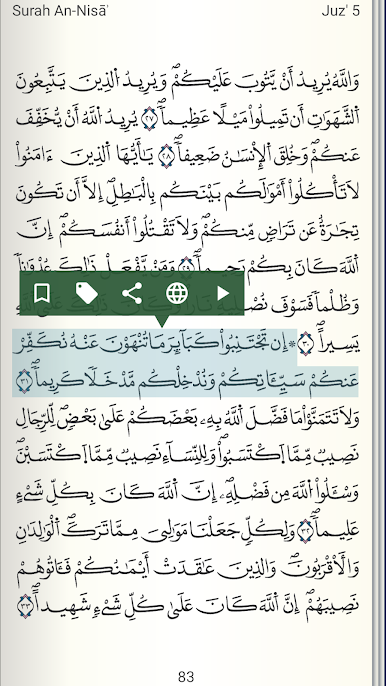 Surah An-Nisāʾ
Juz' 5
وَاللَّهُ يُرِيدُ أَنْ يَتُوبَ عَلَيْكُمْ وَيُرِيدُ الَّذِينَ يَتَّبِعُونَ
الشَّهَوَاتِ أَنْ تَمِيلُوا مَيْلًا عَظِيمًا ٢٧ يُرِيدُ اللَّهُ أَنْ يُخَفِّفَ
عَنْكُمْ وَخُلِقَ الْإِنْسَانُ ضَعِيفًا ٢٨ يَا أَيُّهَا الَّذِينَ ءَامَنُوا
لَا تَأْكُلُوا أَمْوَالَكُمْ بَيْنَكُمْ بِالْبَاطِلِ إِلَّا أَنْ تَكُونَ
تِجَارَةً عَنْ تَرَاضٍ مِنْكُمْ وَلَا تَقْتُلُوا أَنْفُسَكُمْ إِنَّ
اللَّهَ كَانَ بِكُمْ رَحِيمًا ٢٩ وَمَنْ يَفْعَلْ ذَٰلِكَ عُدْوَانًا
وَظُلْمًا فَسَوْفَ نُصْلِيهِ
يَسِيرًا ٣٠ ۞ إِنْ تَجْتَنِبُوا كَبَائِرَ مَا تُنْهَوْنَ عَنْهُ نُكَفِّرْ
عَنْكُمْ سَيِّئَاتِكُمْ وَنُدْخِلْكُمْ مُدْخَلًا كَرِيمًا ٣١
وَلَا تَتَمَنَّوْا مَا فَضَّلَ اللَّهُ بِهِ بَعْضَكُمْ عَلَىٰ بَعْضٍ لِلرِّجَالِ
نَصِيبٌ مِمَّا اكْتَسَبُوا وَلِلنِّسَاءِ نَصِيبٌ مِمَّا اكْتَسَبْنَ
وَسْـَٔلُوا اللَّهَ مِنْ فَضْلِهِ إِنَّ اللَّهَ كَانَ بِكُلِّ شَيْءٍ
عَلِيمًا ٣٢ وَلِكُلٍّ جَعَلْنَا مَوَالِيَ مِمَّا تَرَكَ الْوَالِدَانِ
وَالْأَقْرَبُونَ وَالَّذِينَ عَقَدَتْ أَيْمَانُكُمْ فَـَٔاتُوهُمْ
نَصِيبَهُمْ إِنَّ اللَّهَ كَانَ عَلَىٰ كُلِّ شَيْءٍ شَهِيدًا ٣٣
83